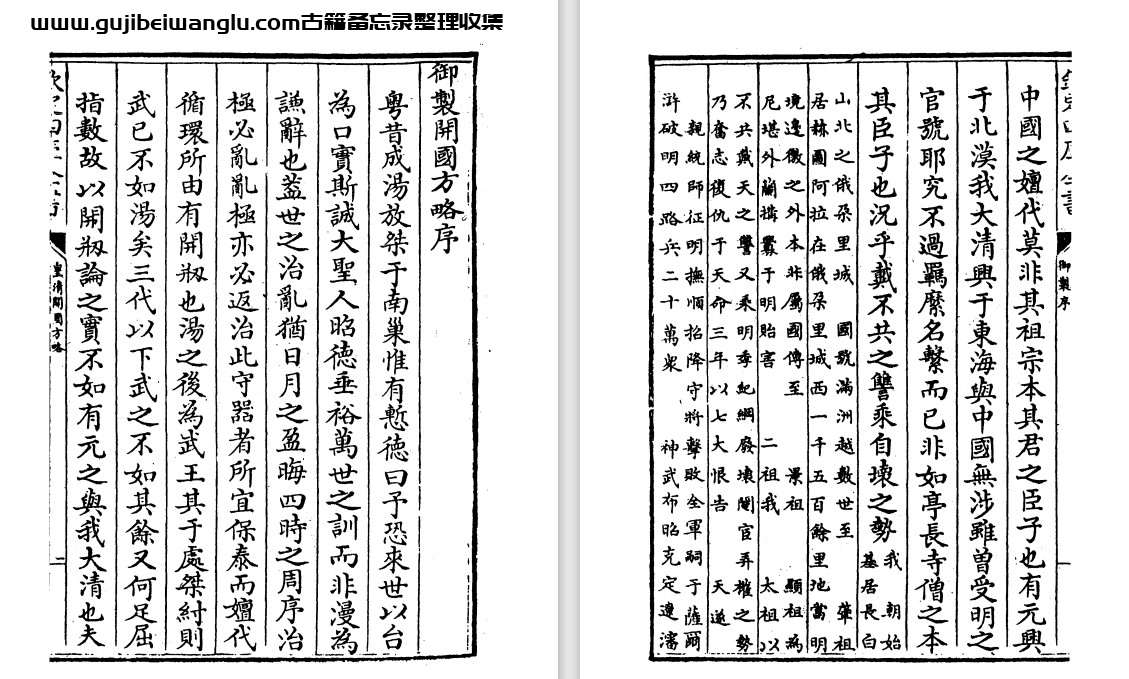 www.gujibeiwanglu.com古籍备忘录整理收集
御製開國方略序
粤昔成湯放桀于南巢惟有慙德曰予恐來世以台
為口實斯誠大聖人昭德垂裕萬世之訓而非漫為
謙辭也葢世之治亂猶日月之盈晦四時之周序治
極必亂亂極亦必返治此守器者所宜保泰而嬗代
循環所由有開剏也湯之後為武王其于處桀紂則
武已不如湯矣三代以下武之不如其餘又何足屈
指數故以開剏論之實不如有元之與我大清也夫
皇清開國方略
御製序
中國之嬗代莫非其祖宗本其君之臣子也有元興
于北漠我大清興于東海與中國無涉雖曾受明之
官號耶究不過羈縻名繫而已非如亭長寺僧之本
其臣子也況乎戴不共之讐乘自壞之勢
我 朝始
基居長白
山北之俄朶里城 國號滿洲越數世至 肇祖
居赫圖阿拉在俄朶里城西一千五百餘里地當明
境邊徼之外本非屬國傳至 景祖 顯祖為
尼堪外蘭搆釁于明貽害 二祖我 太祖以
不共戴天之讐又乘明季紀綱廢壞閹官弄權之勢
乃奮志復仇于天命三年以七大恨告 天遂
親統師征明撫順招降守將擊敗全軍嗣于薩爾
滸破明四路兵二十萬衆 神武布昭克定遼瀋